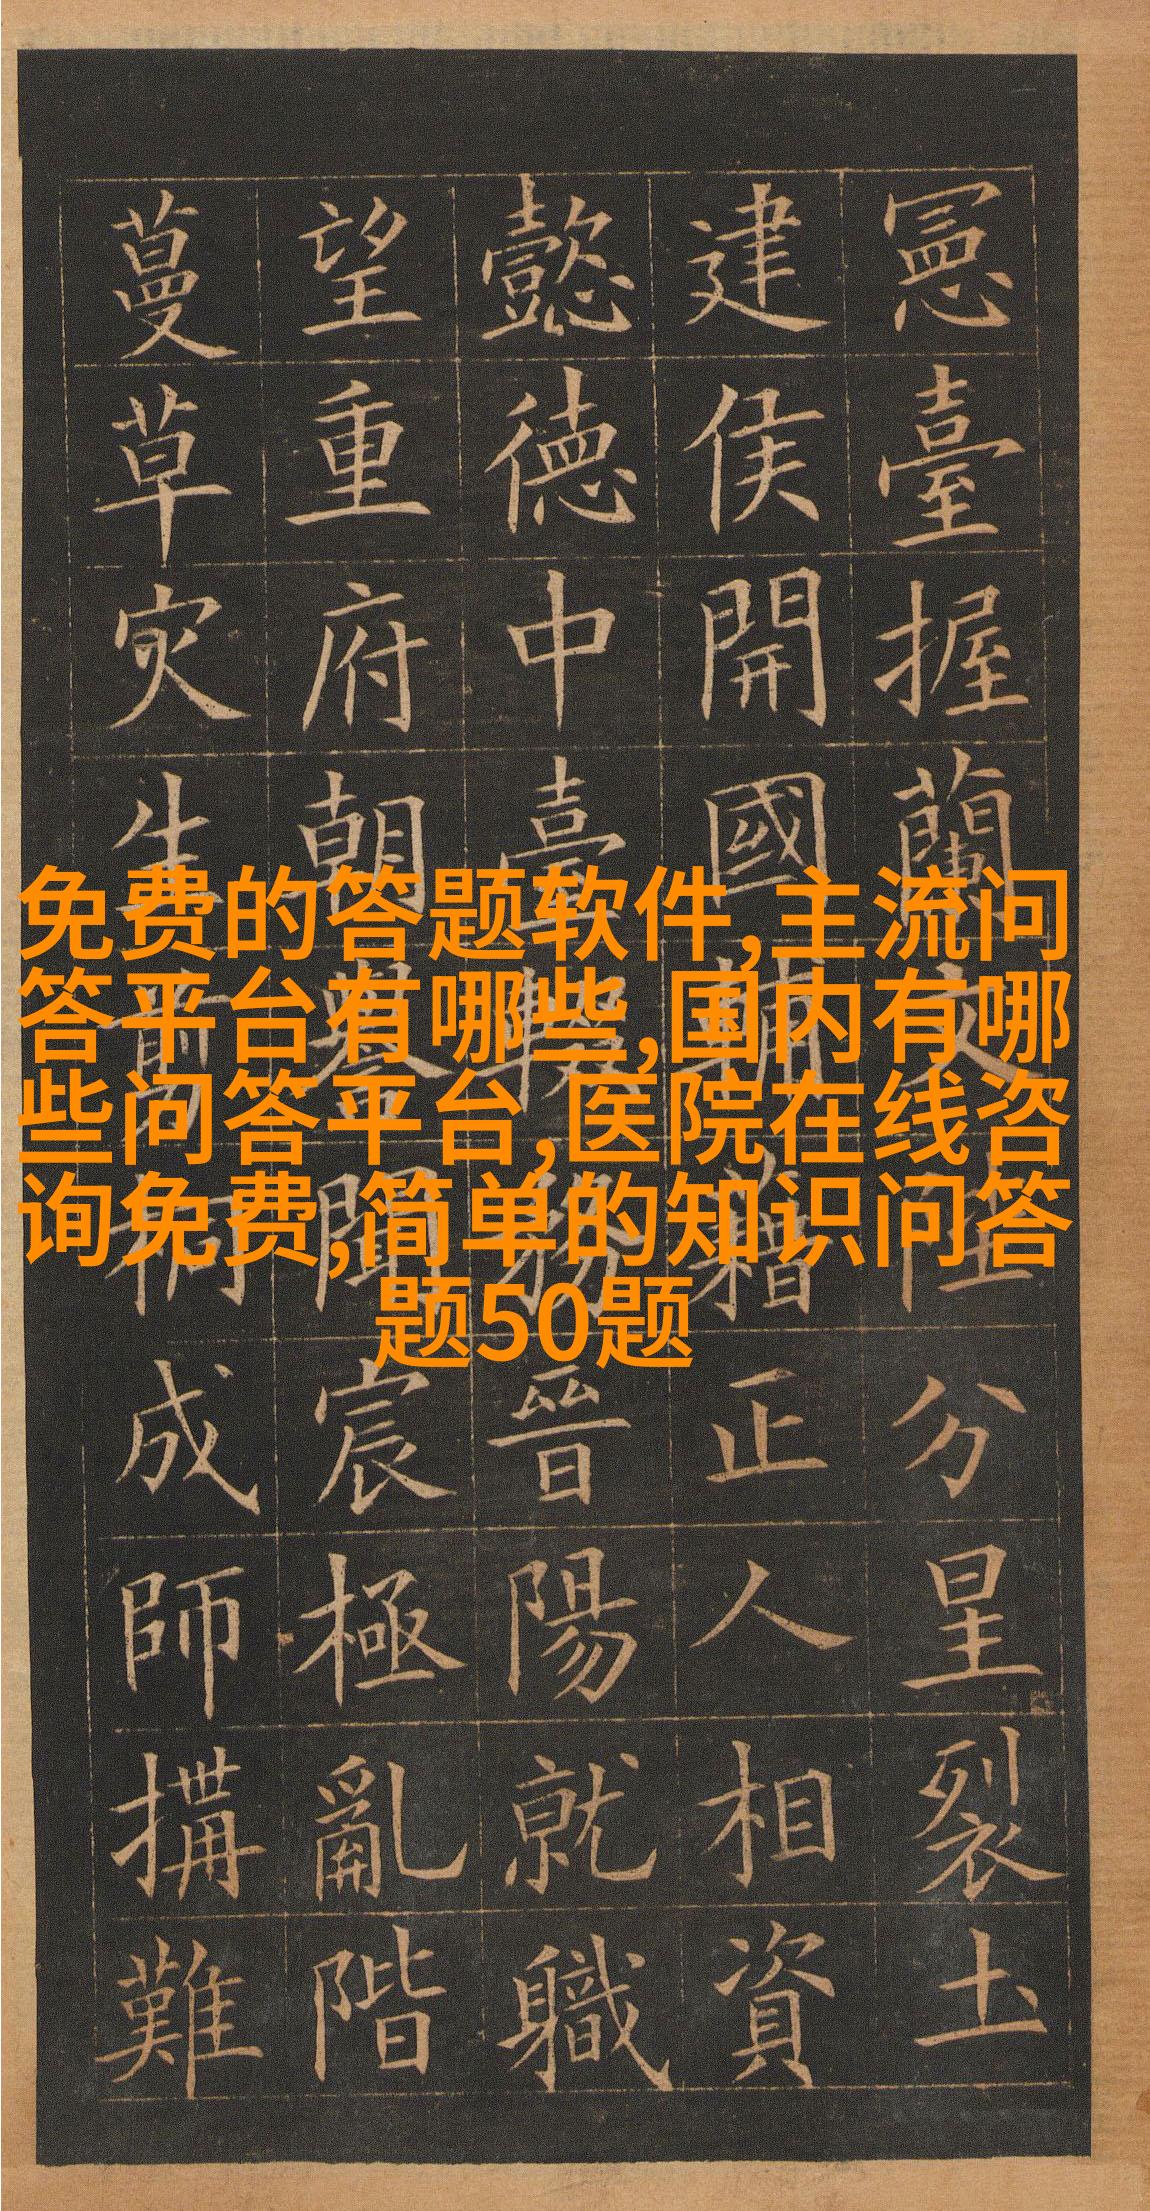 憲臺握蘭文陛分星裂土
建侯開國輔藉正人相資
懿德中臺務晉陽就職
望重府朝譽聞宸極亂階
蔓草灾生翦桐成師搆難
免费的答题软件,主流问
答平台有哪些,国内有哪
些问答平台,医院在线咨
询免费,简单的知识问答
题50题